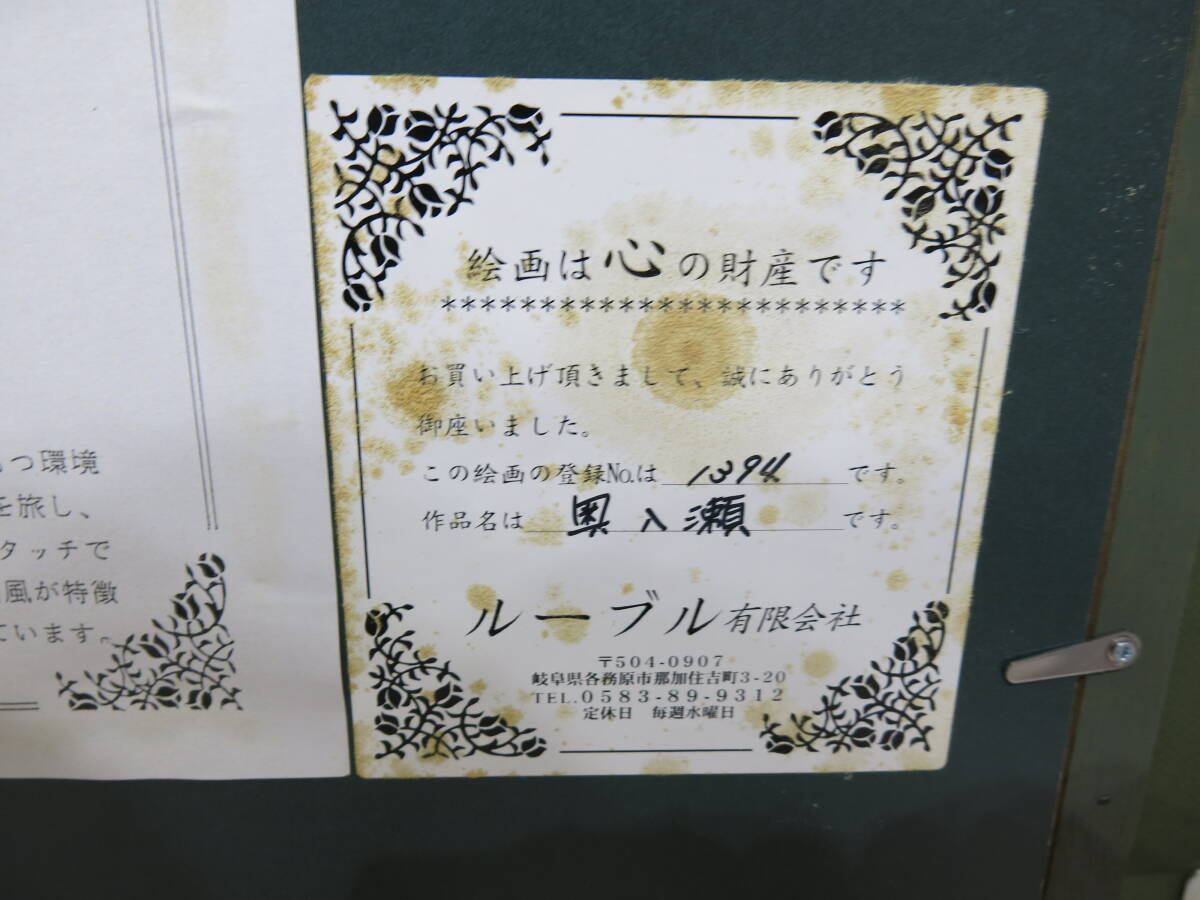 つ環境
を旅し、
タッチで
風が特徴
ています。
絵画は心の財産です
************************
お買い上げ頂きまして、誠にありがとう
御座いました。
この絵画の登録No.は 1394 です。
作品名は 奥入瀬 です。
ルーブル有限会社
〒504-0907
岐阜県各務原市那加住吉町3-20
TEL.0583-89-9312
定休日 毎週水曜日